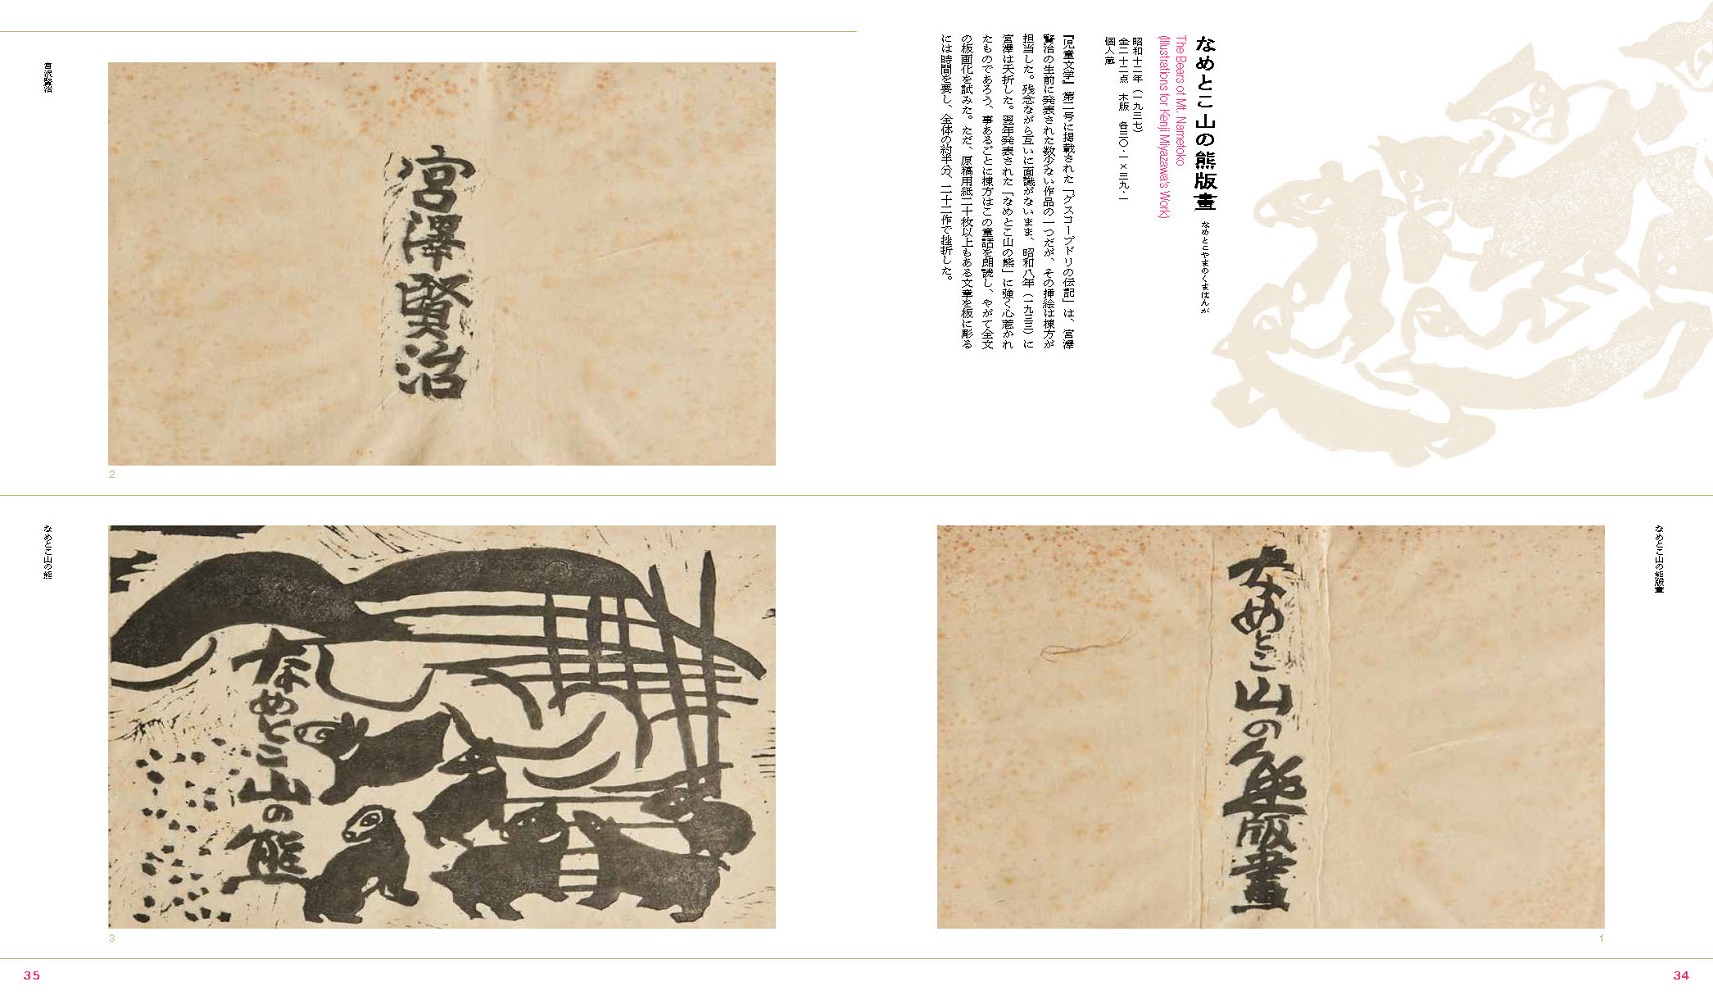 なめとこ山の熊版畫
なめとこやまのくまはんが
The Bears of Mt. Nametoko
(Illustrations for Kenji Miyazawa's Work)
昭和十二年（一九三七）
全二十二点　木版　各三〇・一×三九・一
個人蔵
『児童文学』第二号に掲載された「グスコーブドリの伝記」は、宮澤
賢治の生前に発表された数少ない作品の一つだが、その挿絵は棟方が
担当した。残念ながら互いに面識がないまま、昭和八年（一九三三）に
宮澤は夭折した。翌年発表された「なめとこ山の熊」に強く心惹かれ
たものであろう、事あるごとに棟方はこの童話を朗読し、やがて全文
の板画化を試みた。ただ、原稿用紙二十枚以上もある文章を板に彫る
には時間を要し、全体の約半分、二十二作で挫折した。
なめとこ山の熊版畫
なめとこ山の熊版畫
1
34
宮澤賢治
宮沢賢治
2
なめとこ山の熊
なめとこ山の熊
3
35